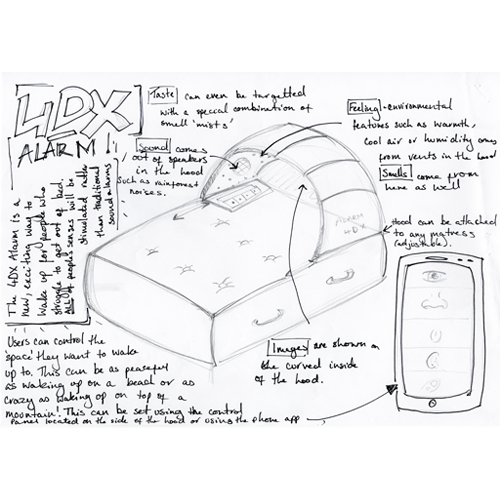 4DX
ALARM!
Taste can even be targetted
with a special combination of
smell 'mists'
Feeling - environmental
features such as warmth,
cool air or humidity comes
from vents in the hood
Smells come from
here as well
Sound comes
out of speakers
in the hood
such as rainforest
noises.
The 4DX Alarm is a
new, exciting way to
wake up for people who
struggle to get out of bed.
All of people's senses will be
stimulated rather
than traditional
sound alarms
ALARM
4DX
Hood can be attached
to any matress
(adjustable).
Images are shown on
the curved inside
of the hood.
Users can control the
space they want to wake
up to. This can be as peaceful
as waking up on a beach or as
crazy as waking up on top of a
mountain! This can be set using the control
panel located on the side of the hood or using the phone app